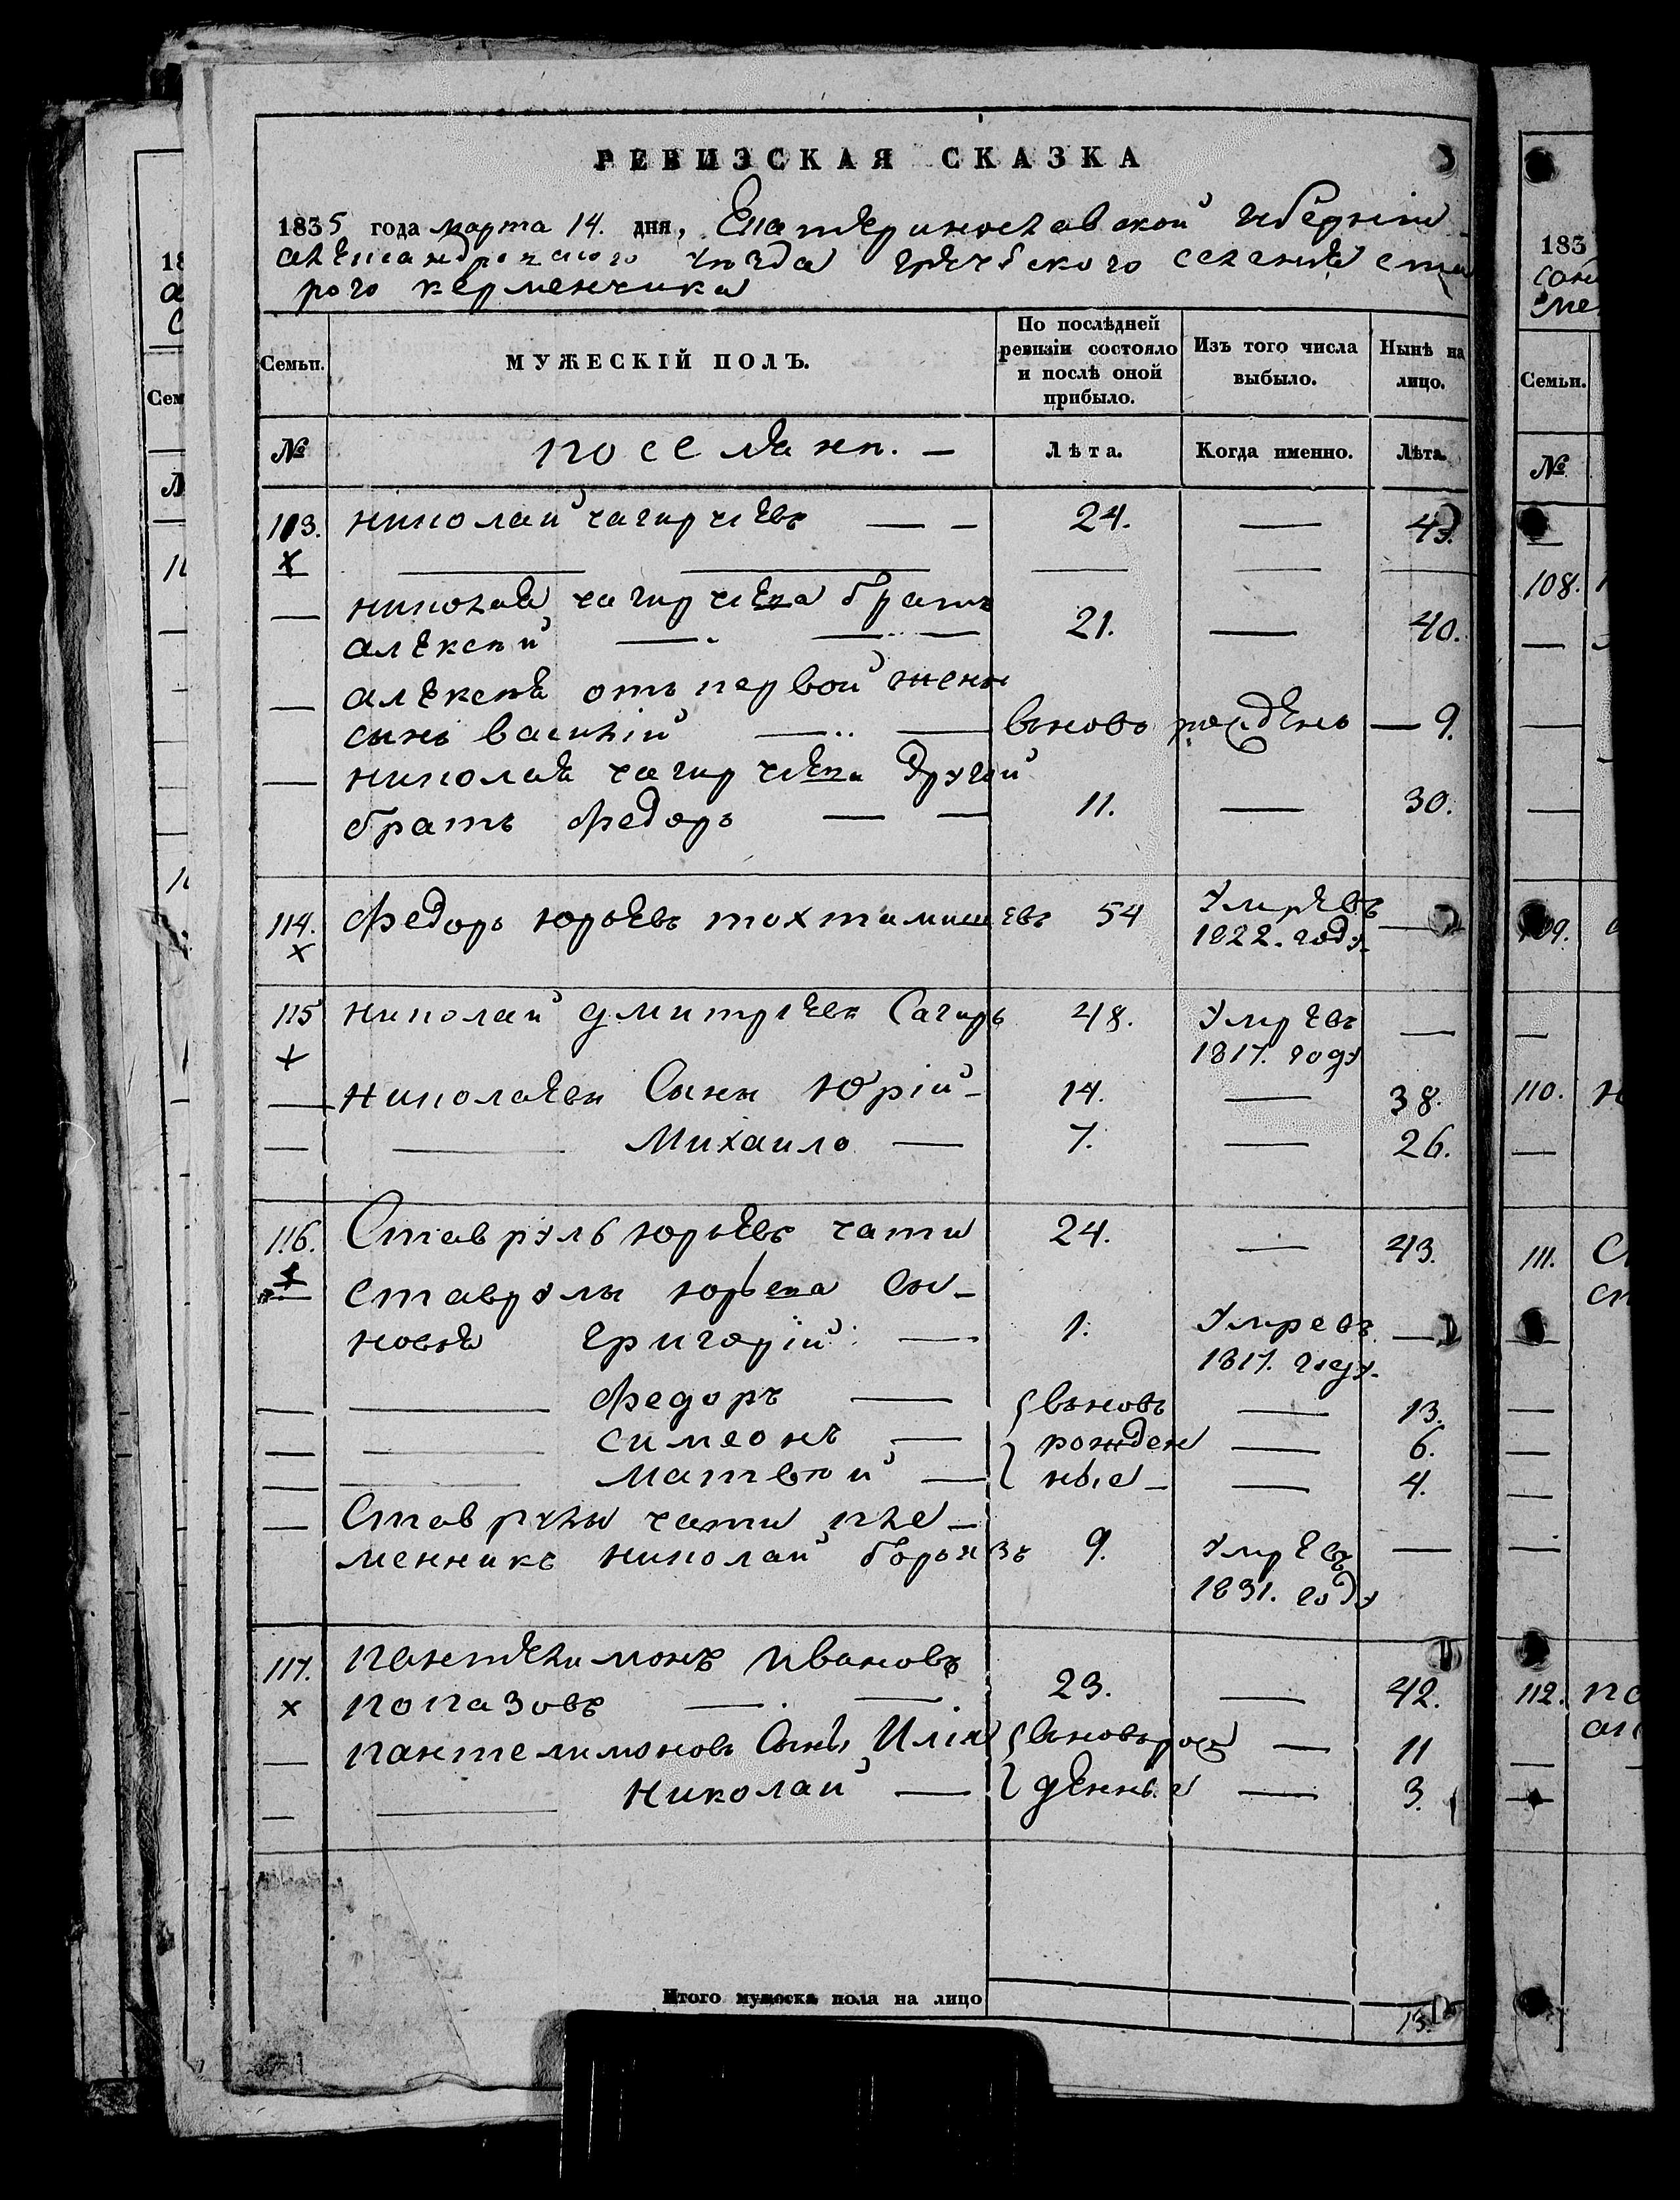 РЕВИЗСКАЯ СКАЗКА
1835 года марта 14. дня, Екатеринославской губерніи
александровского уезда греческого селенія ста
рого керменчика
Семьи.
МУЖЕСКІЙ ПОЛЪ.
По послѣдней ревизіи состояло и послѣ оной прибыло.
Изъ того числа выбыло.
Нынѣ на лицо.
№
поселяне. —
Лѣта.
Когда именно.
Лѣта.
113. николай чагирчіевъ — — 24. — 43.
х
— николая чагирчіева братъ
алексей — — 21. — 40.
— алексея отъ первой жены
сынъ василій — вьновь рожденъ — 9.
— николая чагирчіева другой
братъ федоръ — — 11. — 30.
114. федоръ юрьевъ тохтамишевъ 54 Умревъ —
х 1822. году
115 николай дмитріевъ Сагиръ 48. Умревъ —
х 1817. году
— николаевы Сыны Юрій — 14. — 38.
— Михаило — 7. — 26.
116. Ставруль юрьевъ чати 24. — 43.
х
— ставрулы юрьева сы-
новья Григорій — 1. Умревъ —
1817. году
— федоръ — вьновь — 13.
— симеонъ — рожден — 6.
— матвей — ные — — 4.
— Ставрулы чати пле-
менникъ николай борьязъ 9. Умревъ —
1831. году
117. пантелимонъ ивановъ
х попазовъ — — 23. — 42.
— пантелимоновъ Сыны Илія вьновь рож — 11
— николай — денные — 3.
Итого мужеска пола на лицо
13.
183
Семьи.
№
108.
109.
110.
111.
112.